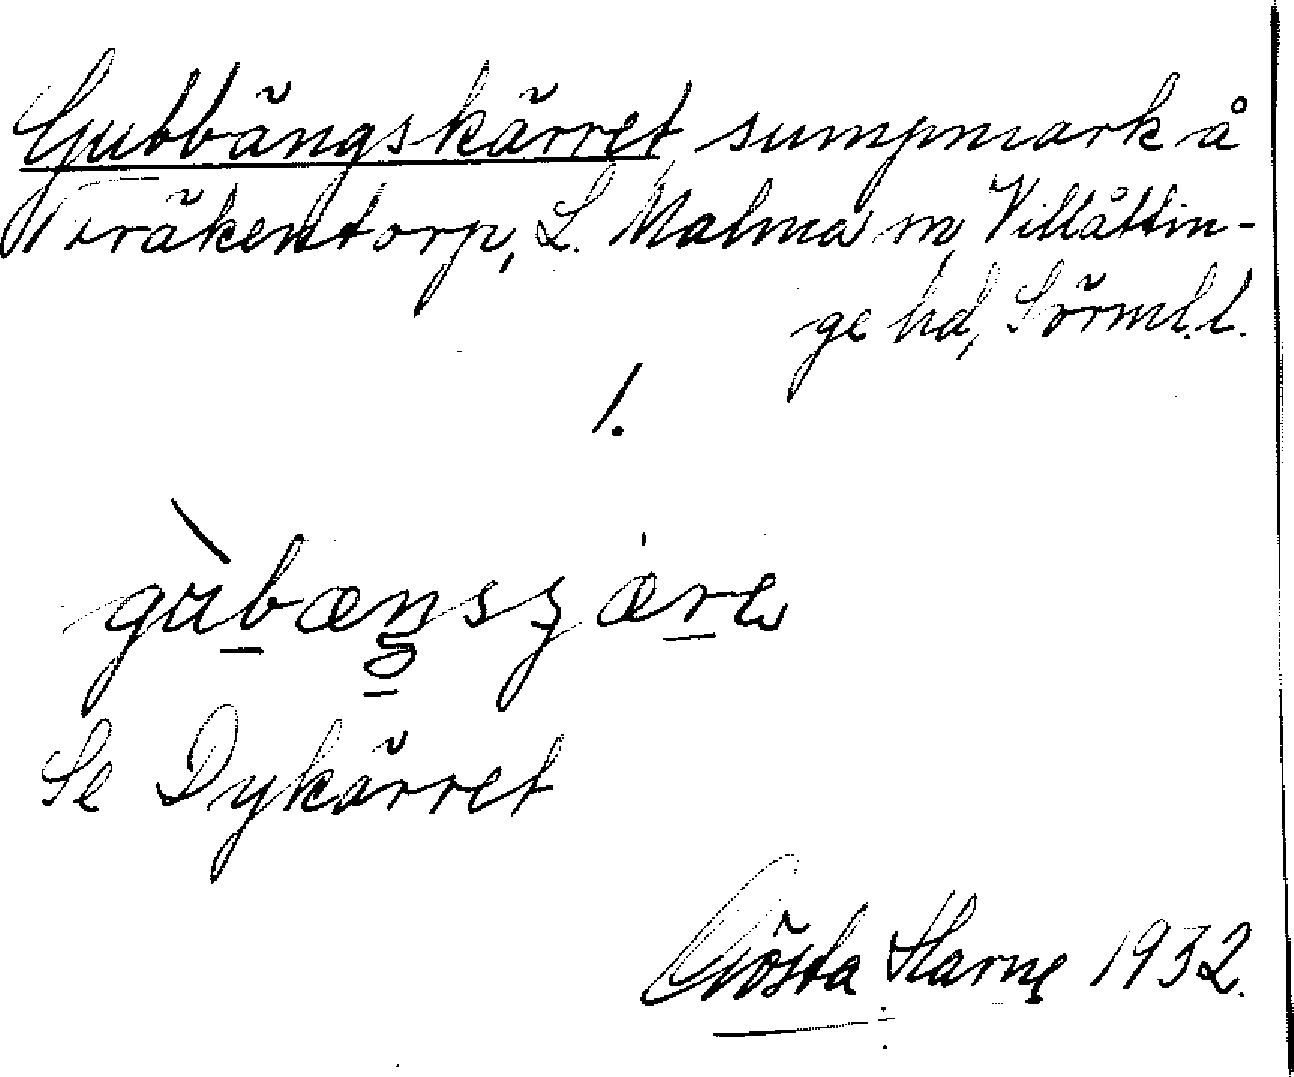 Gubbängskärret sumpmark å
Tväräkentorp, L. Malma sn, Villåttin-
ge hd, Sörml.l.
1.
gùbæŋsʒære
Se Dykärret
Gösta Harne 1932.